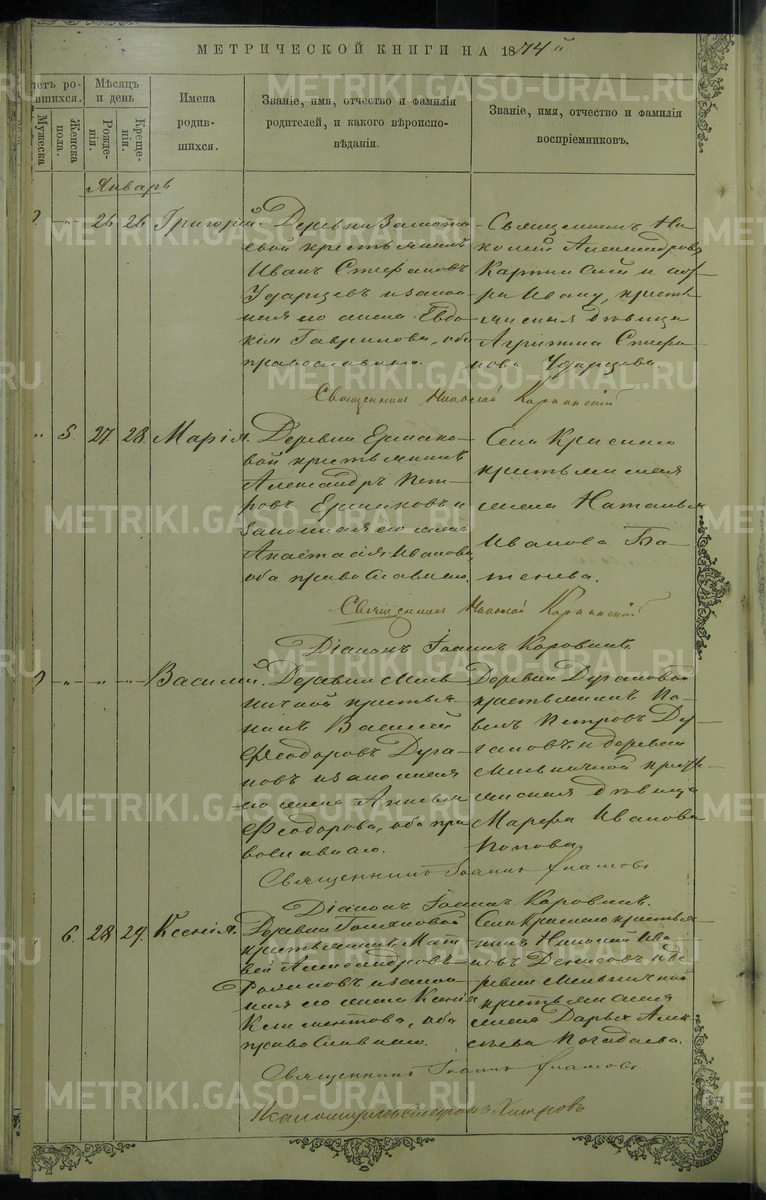 МЕТРИЧЕСКОЙ КНИГИ НА 1874й
METRIKI.GASO-URAL.RU
четъ ро-
вшихся.
Мужеска
Женска
пола.
Мѣсяцъ
и день
Рожде-
нія.
Креще-
нія.
Имена
родив-
шихся.
Званіе, имя, отчество и фамилія
родителей, и какого вѣроиспо-
вѣданія.
Званіе, имя, отчество и фамилія
воспріемниковъ.
Январь
26 26 Григорій.
Деревни
крестьянинъ
Иванъ Стефановъ
Ударцевъ и закон
ная его жена Евдо
кія Гаврилова, оба
православные.
Священникъ Ни-
колай Александровъ
и
Ивану, кресть
янская дѣвица
Стефа
нова Ударцева
Священникъ Николай
5. 27. 28. Марія.
Деревни Ермако-
вой крестьянинъ
Александръ Пет-
ровъ Ермаковъ и
законная его жена
Анастасія Иванова,
оба православные.
Села Краснаго
крестьянская
жена Наталья
Иванова Ба-
женева.
Священникъ Николай
Діаконъ Іоаннъ Коровинъ.
Василій.
Деревни Мель
ничной крестья
нинъ Василій
Феодоровъ Дуга
новъ и законная
его жена
Феодорова, оба пра
вославные.
Деревни Дугановой
крестьянинъ Па-
велъ Петровъ Ду-
гановъ и деревни
Мельничной кресть-
янская дѣвица
Марфа Иванова
Попова.
Священникъ Іоаннъ
Діаконъ Іоаннъ Коровинъ.
6. 28. 29. Ксенія.
Деревни
крестьянинъ Мат
вей Александровъ
и закон
ная его жена Ксенія
Климентова, оба
православные.
Села Краснаго крестья-
нинъ Николай Ива
новъ Денисовъ и де
ревни Мельничной
крестьянская
жена Дарья Алек
сѣева Погадаева.
Священникъ Іоаннъ